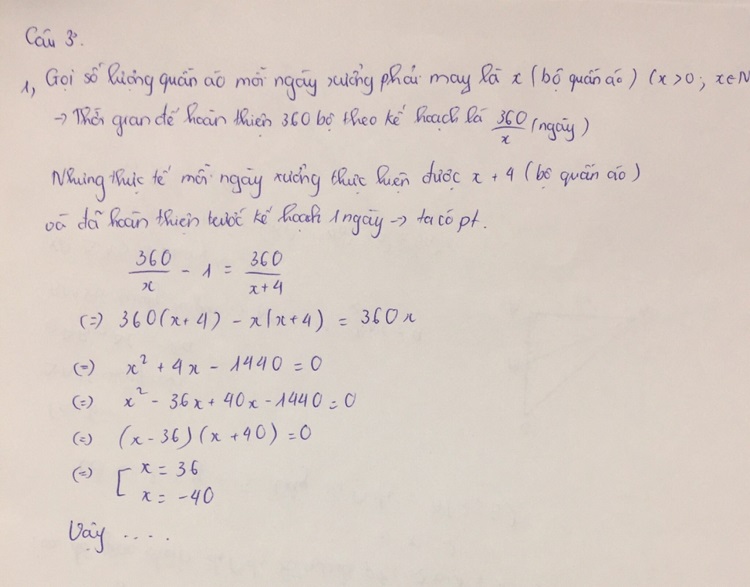 Câu 3.
1, Gọi số lượng quần áo mỗi ngày xưởng phải may là x (bộ quần áo) (x > 0; x ∈ N
→ Thời gian để hoàn thiện 360 bộ theo kế hoạch là 360/x (ngày)
Nhưng thực tế mỗi ngày xưởng thực hiện được x + 4 (bộ quần áo)
và đã hoàn thiện trước kế hoạch 1 ngày → ta có pt.
360/x - 1 = 360/x+4
(=) 360(x+4) - x(x+4) = 360x
(=) x² + 4x - 1440 = 0
(=) x² - 36x + 40x - 1440 = 0
(=) (x-36)(x+40) = 0
(=) [ x = 36
x = -40
Vậy ....